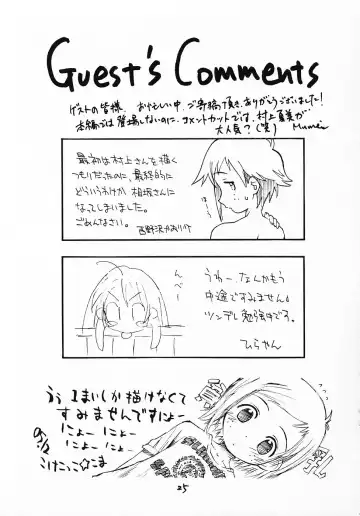 Guest's Comments
ゲストの皆様、お忙しい中、ご寄稿頂き、ありがとうございました!
本編では登場しないのに、コメントカットでは、村上夏美が
大人気?(笑)
最初は村上さんを描く
つもりだったのに、最終的に
どういうわけか柏坂さんに
なってしまいました。
ごめんなさい。
んべー
うわー、なんかもう
中途ですみません。
ツンデレ勉強中です。
ひらやん
うぅ 1まいしか描けなくて
すみませんですにょー
にょー にょー
にょー にょー
こけこっこ☆こま
25